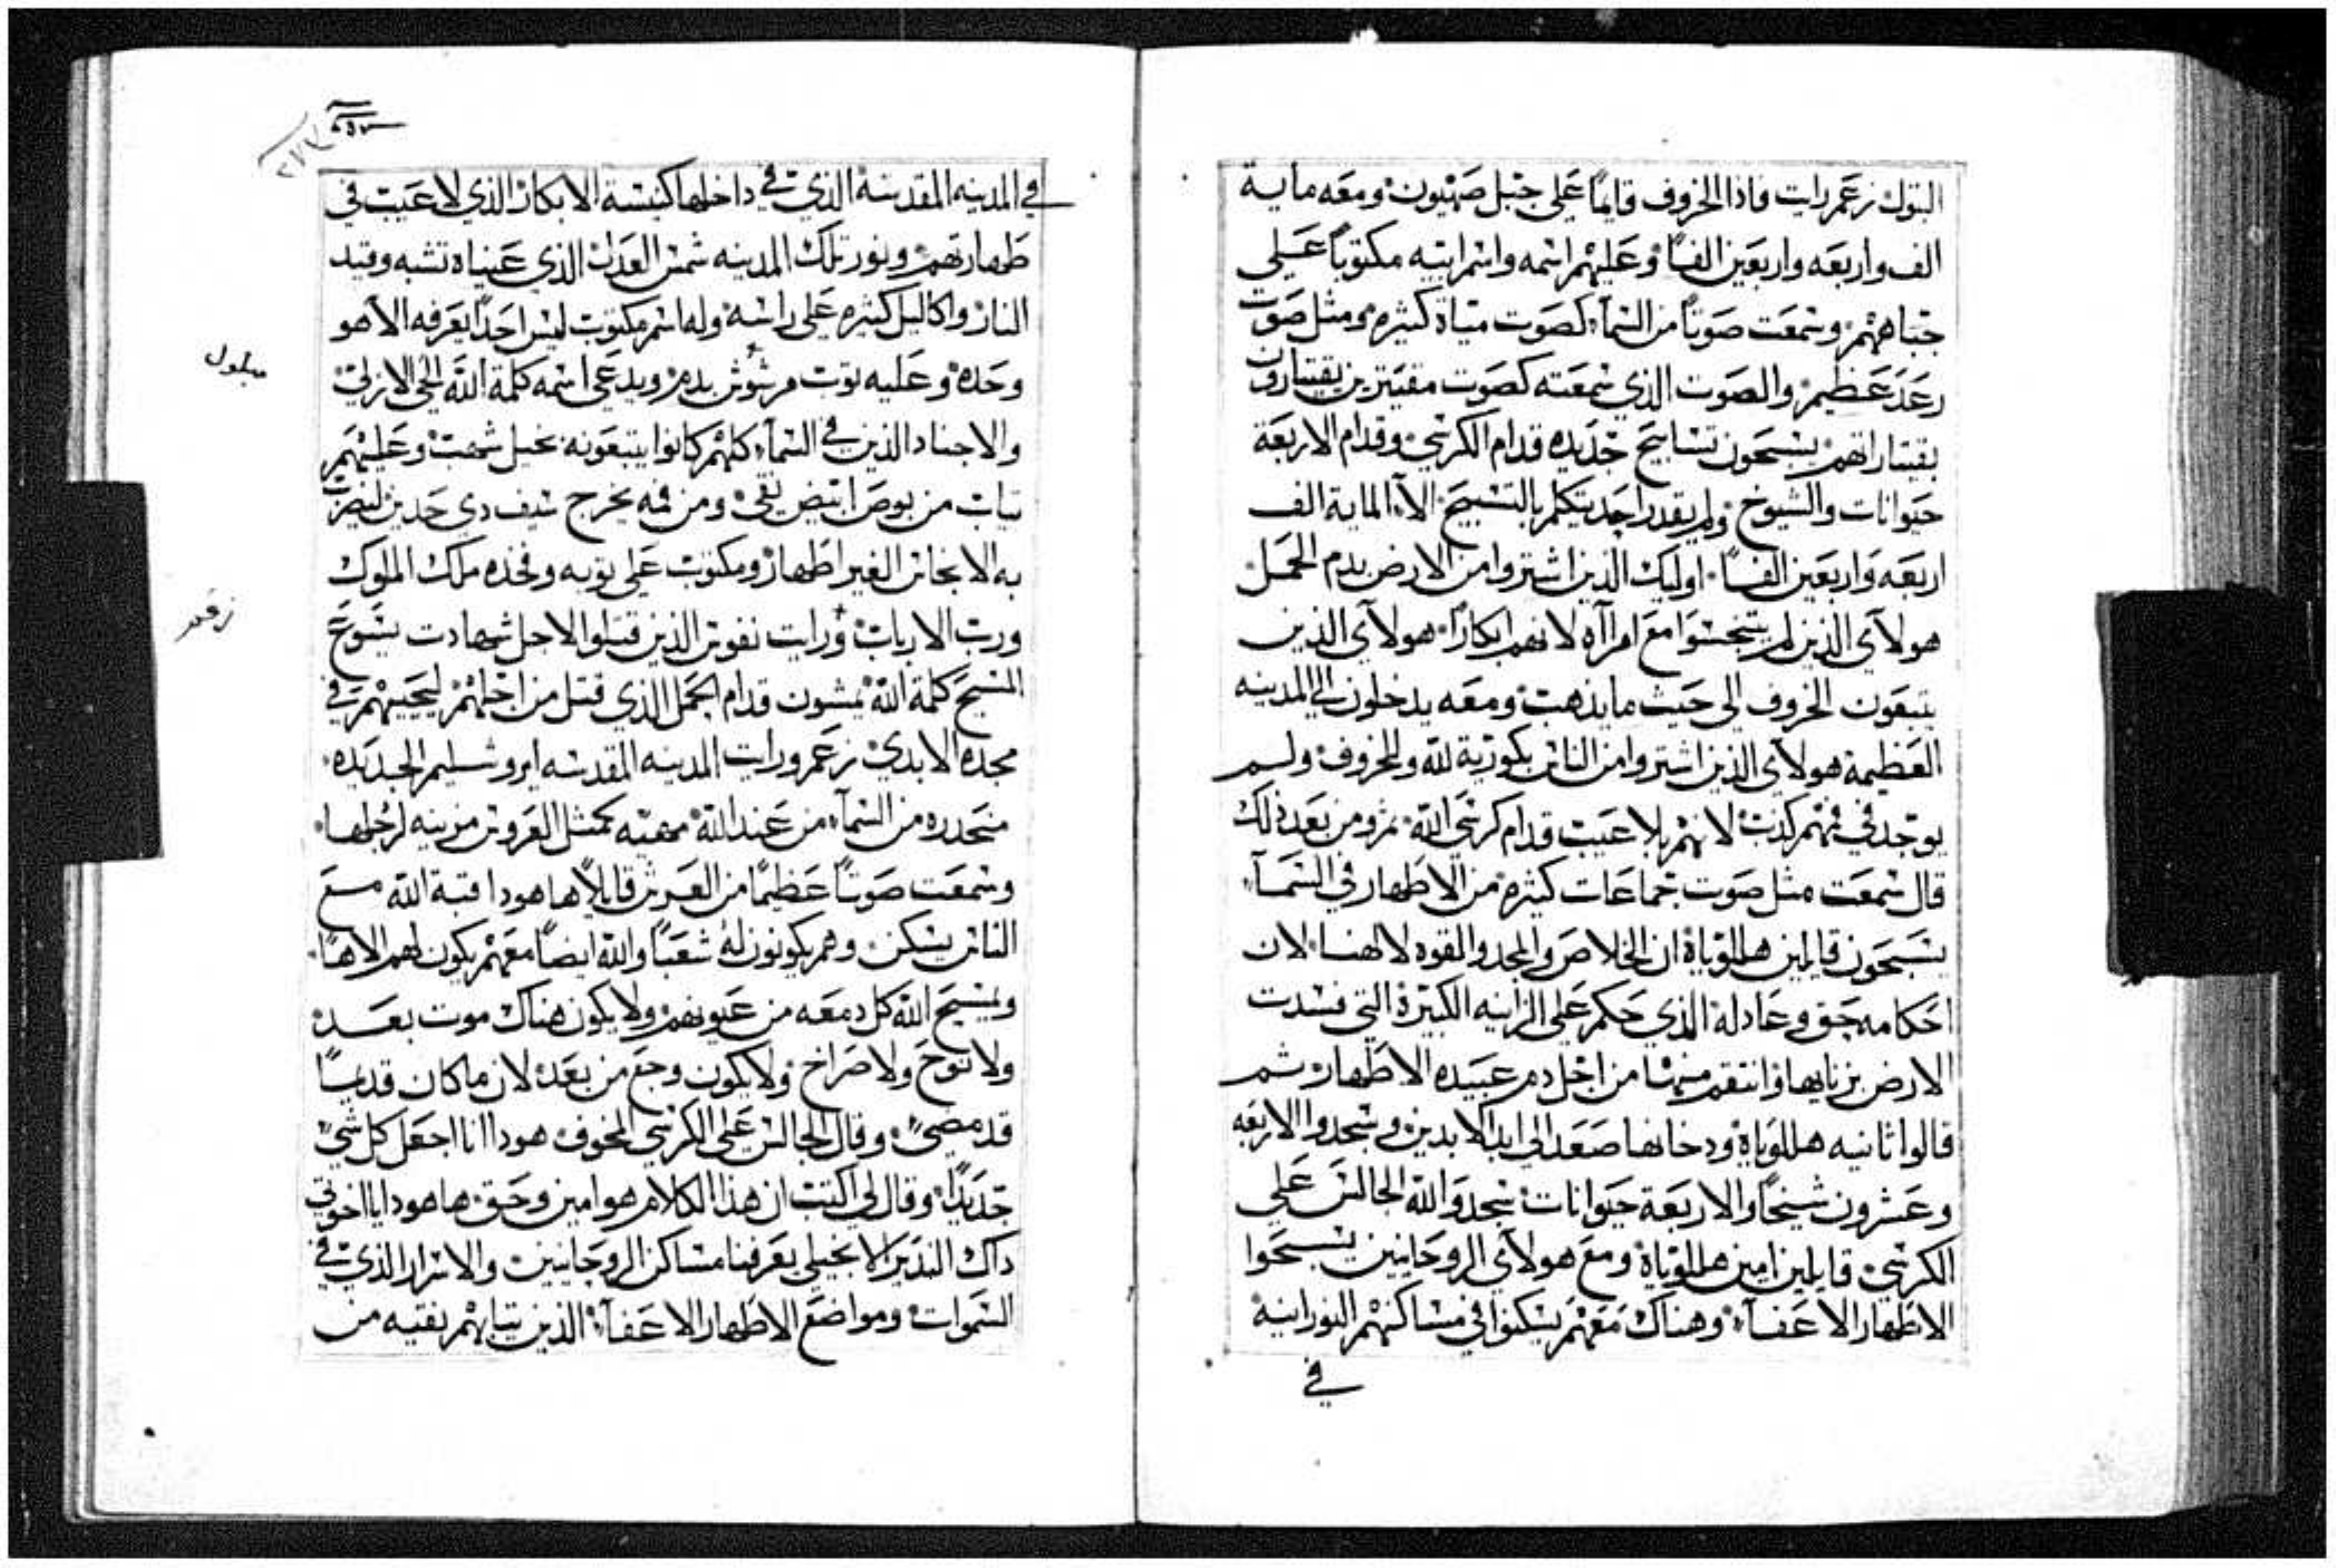 البتول زعم رايت فاذا الخروف قايمًا على جبل صهيون ومعه ماية
الف واربعه واربعين الفًا وعليهم اسمه واسم ابيه مكتوبًا على
جباههم وسمعت صوتًا من السمآء كصوت مياة كثيره ومثل صوت
رعد عظيم والصوت الذي سمعته كصوت مقيترين يقيتارون
بقيتاراتهم يسبحون تسابيح جديده قدام الكرسي وقدام الاربعة
حيوانات والشيوخ ولم يقدر احد يتكلم بالتسبيح الاّ الماية الف
اربعه واربعين الفًا اوليك الذين اشتروا من الارض بدم الحمل
هولآي الذين لم يتنجسوا مع امرآه لانهم ابكارًا هولآي الذين
يتبعون الخروف الى حيث ما يذهب ومعه يدخلون الى المدينه
العظيمة هولآي الذين اشتروا من الناس بكورية لله وللخروف ولم
يوجد في فمهم كذب لانهم بلا عيب قدام كرسي الله ثم ومن بعد ذلك
قال سمعت مثل صوت جماعات كثيره من الاطهار في السمآء
يسبحون قايلين هلللوياة ان الخلاص والمجد والقوه لالهنا لان
احكامه حق وعادلة الذي حكم على الزانيه الكبيرة التي فسدت
الارض بزناها وانتقم منها من اجل دم عبيده الاطهار ثم
قالوا ثانيه هلللوياة ودخانها صعد الى ابد الابدين وسجدوا الاربعه
وعشرون شيخًا والاربعة حيوانات سجدو الله الجالس على
الكرسي قايلين امين هلللوياة ومع هولآي الروحانيين يسبحوا
الاطهار الاعفآء وهناك معهم يسكنوا في مساكنهم النورانية
في
في المدينه المقدسة الذي في داخلها كنيسة الابكار الذي لا عيب في
طهارتهم ونور تلك المدينه شمس العدل الذي عيناه تشبه وقيد
النار واكاليل كثيره على راسه وله اسم مكتوب ليس احدًا يعرفه الا هو
وحده وعليه توب مرشوش بدم ويدعى اسمه كلمة الله الحي الازلي
مبلول
والاجناد الذين في السمآء كلهم كانوا يتبعونه بخيل شهب وعليهم
تياب من بوص ابيض نقي ومن فمه يخرج سيف دي حدين ليضرب
به الانجاس الغير اطهار ومكتوب على توبه وفخده ملك الملوك
ورب الارباب ورايت نفوس الذين قتلوا لاجل شهادت يسوع
زعم
المسيح كلمة الله يمشون قدام الحمل الذي قتل من اجلهم ليحييهم في
مجده الابدي زعم ورايت المدينه المقدسه ايروشليم الجديده
منحدره من السمآء من عند الله مهيئه كمثل العروس مزينه لرجلها
وسمعت صوتًا عظيمًا من العرش قايلاً ها هودا قبة الله مع
الناس يسكن وهم يكونون لهُ شعبًا والله ايضًا معهم يكون لهم الاهًا
ويمسح الله كل دمعه من عيونهم ولا يكون هناك موت بعد
ولا نوح ولا صراخ ولا يكون وجع من بعد لان ما كان قديمًا
قد مضي وقال الجالس على الكرسي المخوف هودا انا اجعل كل شي
جديدًا وقال لي اكتب ان هذا الكلام هو امين وحق ها هودا يا اخوتي
داك النذير الانجيلي يعرفنا مساكن الروحانيين والاسرار الذي في
السموات ومواضع الاطهار الاعفآء الذين تيابهم نقيه من